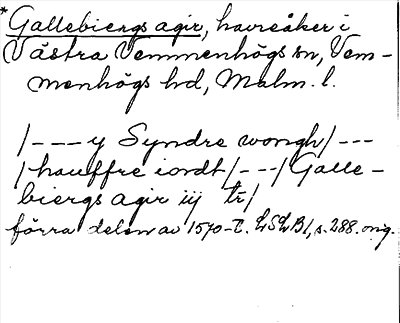 *Gallebiergs agir, havreåker i
Västra Vemmenhögs sn, Vem-
menhögs hd, Malm. l.
/---y Syndre wongh/---
/hauffre iordt/---/Galle-
biergs agir iij tr/
förra delen av 1570-t. LSLB1, s. 288. orig.